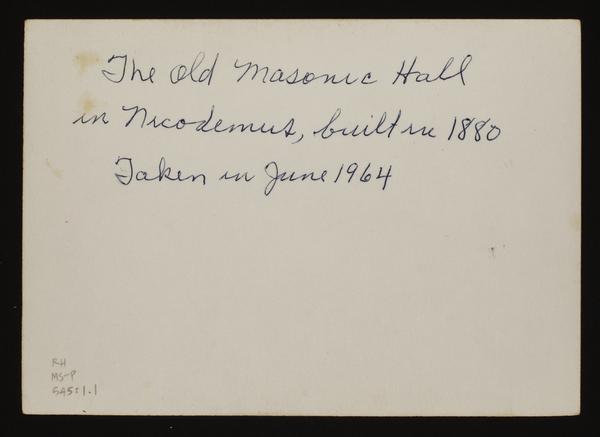 The Old Masonic Hall
in Nicodemus, built in 1880
Taken in June 1964
RH
MS-P
545:1.1